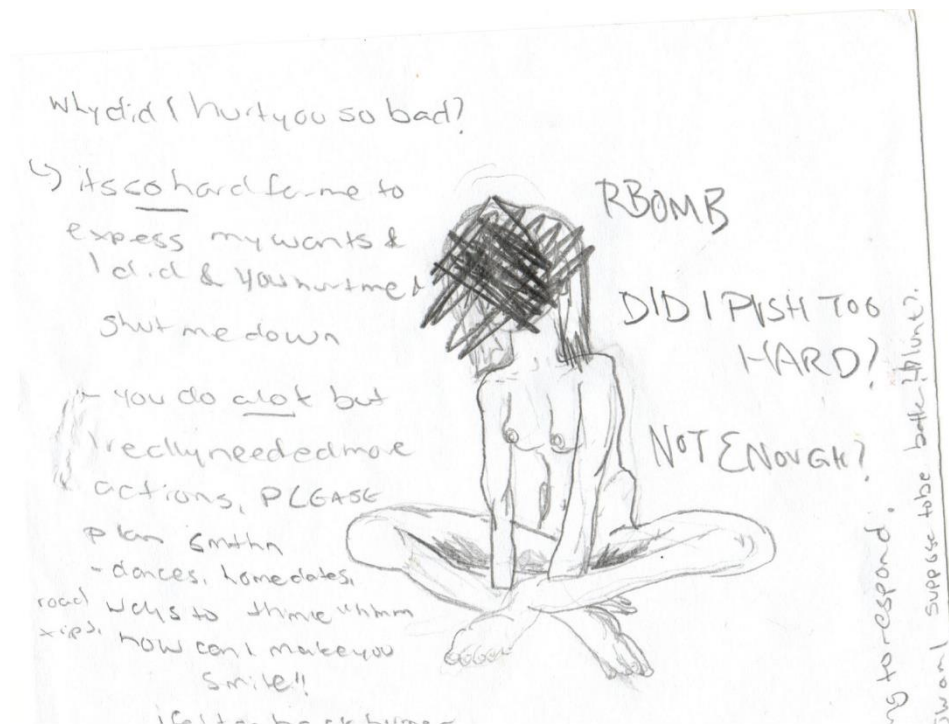 why did I hurt you so bad?
↳ its so hard for me to
expess my wants &
I did & you hurt me &
shut me down
- you do alot but
I really needed more
actions, PLEASE
plan smthn
- dances, home dates,
road
ways to think "hmm
how can I make you
smile!!
RBOMB
DID I PUSH TOO
HARD?
NOT ENOUGH?
to respond.
I suppose to be